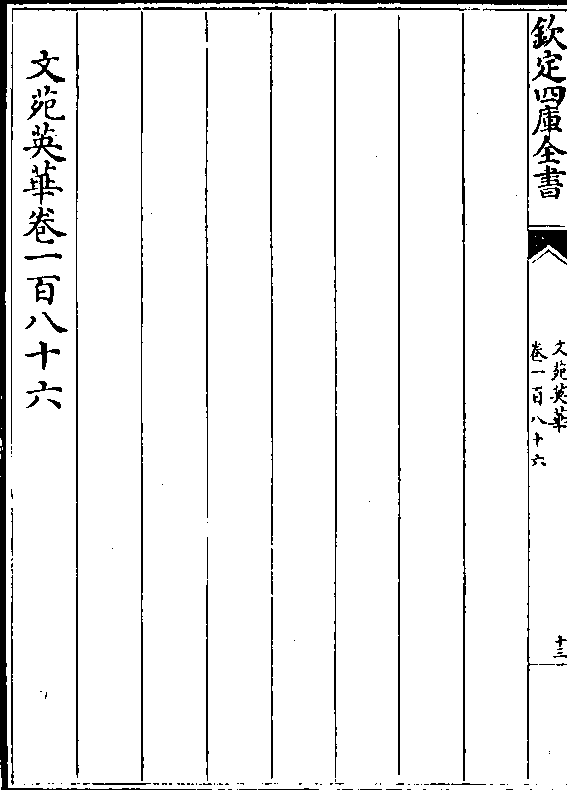 欽定四庫全書
文苑英華
卷一百八十六
十三
文苑英華卷一百八十六